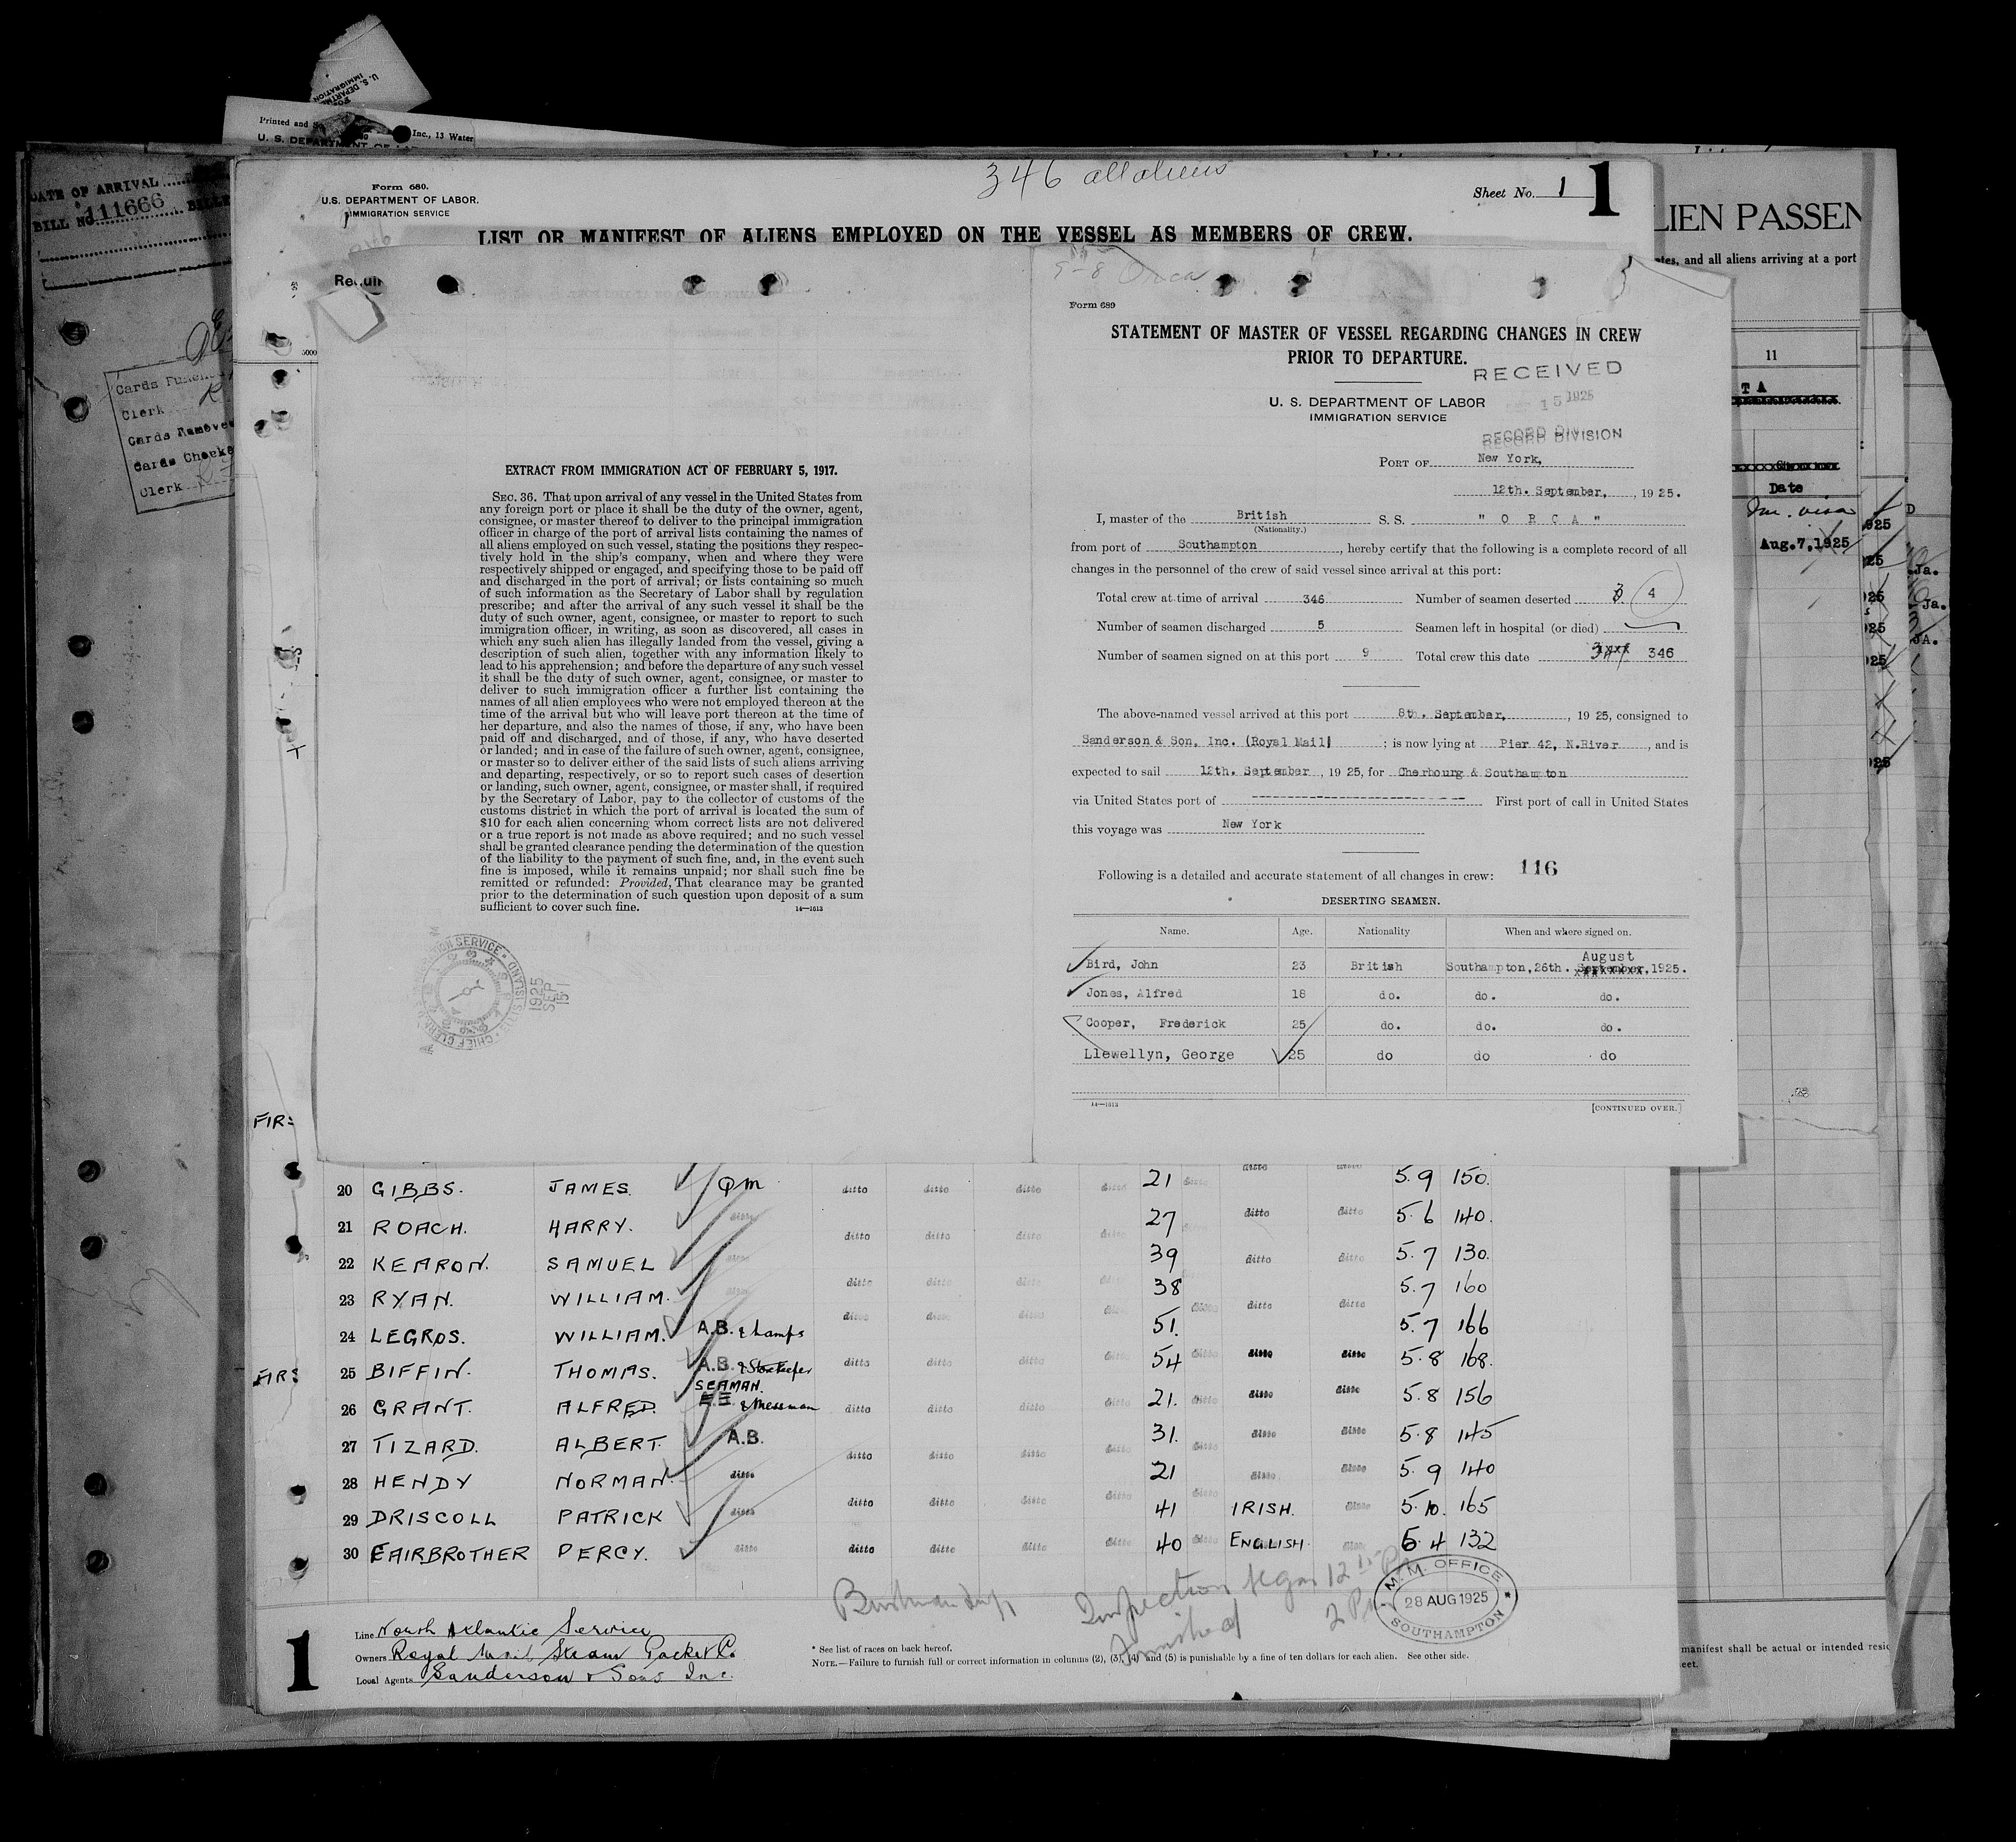 U. S. DEPARTME
IMMIGRATION
Printed and
Inc., 13 Water
U. S. DEPARTMENT OF LA
DATE OF ARRIVAL
BILL NO. 111666
Cards
Clerk
Cards Removed
Cards Checke
Clerk
346 all aliens
Form 680.
U.S. DEPARTMENT OF LABOR.
IMMIGRATION SERVICE
Sheet No. 1
1
LIST OR MANIFEST OF ALIENS EMPLOYED ON THE VESSEL AS MEMBERS OF CREW.
EXTRACT FROM IMMIGRATION ACT OF FEBRUARY 5, 1917.
SEC. 36. That upon arrival of any vessel in the United States from
any foreign port or place it shall be the duty of the owner, agent,
consignee, or master thereof to deliver to the principal immigration
officer in charge of the port of arrival lists containing the names of
all aliens employed on such vessel, stating the positions they respec-
tively hold in the ship's company, when and where they were
respectively shipped or engaged, and specifying those to be paid off
and discharged in the port of arrival; or lists containing so much
of such information as the Secretary of Labor shall by regulation
prescribe; and after the arrival of any such vessel it shall be the
duty of such owner, agent, consignee, or master to report to such
immigration officer, in writing, as soon as discovered, all cases in
which any such alien has illegally landed from the vessel, giving a
description of such alien, together with any information likely to
lead to his apprehension; and before the departure of any such vessel
it shall be the duty of such owner, agent, consignee, or master to
deliver to such immigration officer a further list containing the
names of all alien employees who were not employed thereon at the
time of the arrival but who will leave port thereon at the time of
her departure, and also the names of those, if any, who have been
paid off and discharged, and of those, if any, who have deserted
or landed; and in case of the failure of such owner, agent, consignee,
or master so to deliver either of the said lists of such aliens arriving
and departing, respectively, or so to report such cases of desertion
or landing, such owner, agent, consignee, or master shall, if required
by the Secretary of Labor, pay to the collector of customs of the
customs district in which the port of arrival is located the sum of
$10 for each alien concerning whom correct lists are not delivered
or a true report is not made as above required; and no such vessel
shall be granted clearance pending the determination of the question
of the liability to the payment of such fine, and, in the event such
fine is imposed, while it remains unpaid; nor shall such fine be
remitted or refunded: Provided, That clearance may be granted
prior to the determination of such question upon deposit of a sum
sufficient to cover such fine.
14—1613
1925 SEP 15
9-8 Orca
Form 689
STATEMENT OF MASTER OF VESSEL REGARDING CHANGES IN CREW
PRIOR TO DEPARTURE.
RECEIVED
15 1925
RECORD DIVISION
U. S. DEPARTMENT OF LABOR
IMMIGRATION SERVICE
PORT OF New York,
12th. September, , 1925.
I, master of the British S. S. " O R C A "
(Nationality.)
from port of Southampton, hereby certify that the following is a complete record of all
changes in the personnel of the crew of said vessel since arrival at this port:
Total crew at time of arrival 346 Number of seamen deserted 3 4
Number of seamen discharged 5 Seamen left in hospital (or died)
Number of seamen signed on at this port 9 Total crew this date 346
The above-named vessel arrived at this port 8th. September, , 1925, consigned to
Sanderson & Son, Inc. (Royal Mail) ; is now lying at Pier 42, N.River , and is
expected to sail 12th. September , 1925, for Cherbourg & Southampton
via United States port of ---------------- First port of call in United States
this voyage was New York
Following is a detailed and accurate statement of all changes in crew: 116
DESERTING SEAMEN.
Name. Age. Nationality When and where signed on.
August
Bird, John 23 British Southampton, 26th. September, 1925.
Jones, Alfred 18 do. do. do.
Cooper, Frederick 25 do. do. do.
Llewellyn, George 25 do do do
14—1613
[CONTINUED OVER.]
LIEN PASSEN
ates, and all aliens arriving at a port
11
T A
Date
Imm. visa
Aug.7,1925
Ja.
Ja.
JA.
FIRS
FIRS
20 GIBBS. JAMES. QM ditto ditto ditto ditto 21 ditto ditto ditto 5.9 150.
21 ROACH. HARRY. ditto ditto ditto ditto ditto 27 ditto ditto 5.6 140.
22 KEARON. SAMUEL ditto ditto ditto ditto 39 ditto ditto 5.7 130.
23 RYAN. WILLIAM. ditto ditto ditto ditto 38 ditto ditto ditto 5.7 160
24 LEGROS. WILLIAM. A.B. & Lamps ditto ditto ditto 51. 5.7 166
25 BIFFIN. THOMAS. A.B. & Storekeeper ditto ditto ditto ditto 54 ditto ditto ditto 5.8 168.
26 GRANT. ALFRED. SEAMAN. & Messman ditto ditto ditto ditto 21. ditto ditto ditto 5.8 156
27 TIZARD. ALBERT. A.B. ditto ditto ditto ditto 31. ditto ditto ditto 5.8 145
28 HENDY NORMAN. ditto ditto ditto ditto ditto 21 ditto ditto 5.9 140
29 DRISCOLL PATRICK ditto ditto ditto ditto ditto 41 ditto IRISH. ditto 5.10. 165
30 FAIRBROTHER PERCY. ditto ditto ditto ditto ditto 40 ditto ENGLISH. ditto 5.4 132
Inspection began 12
finished 2 PM
M.M. OFFICE
28 AUG 1925
SOUTHAMPTON
1
Line North Atlantic Service
Owners Royal Mail Steam Packet Co
Local Agents Sanderson & Sons Inc.
* See list of races on back hereof.
NOTE.—Failure to furnish full or correct information in columns (2), (3), (4) and (5) is punishable by a fine of ten dollars for each alien. See other side.
manifest shall be actual or intended resid
eet.